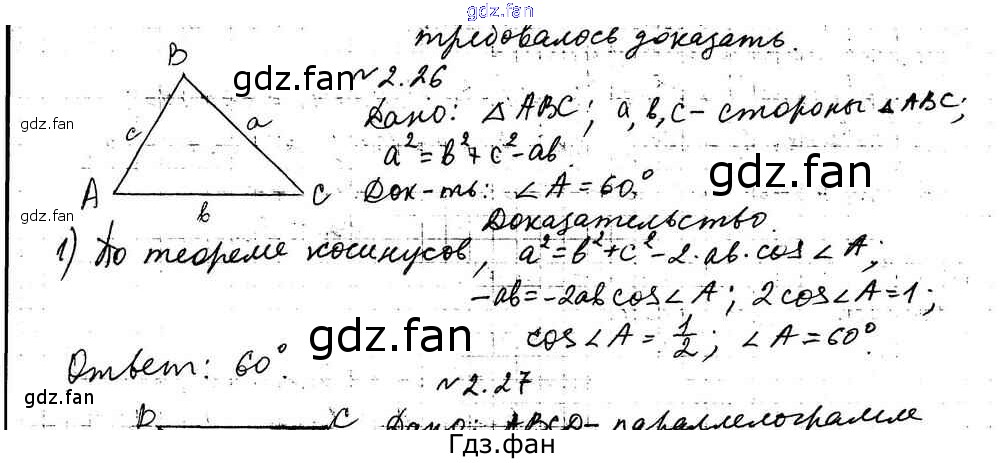 gdz.fan
требовалось доказать.
B
gdz.fan
№ 2.26
gdz.fan
c
a
Дано: △ ABC; a, b, c - стороны △ ABC;
a² = b² + c² - ab.
gdz.fan
A
C
b
Док-ть: ∠ A = 60°
gdz.fan
Доказательство.
1) По теореме косинусов, a² = b² + c² - 2·ab·cos ∠ A;
- ab = -2ab cos ∠ A; 2 cos ∠ A = 1;
gdz.fan
cos ∠ A = 1/2; ∠ A = 60°.
Ответ: 60°.
gdz.fan
№ 2.27
B
C
Дано: ABCD - параллелограмм
Гдз.фан